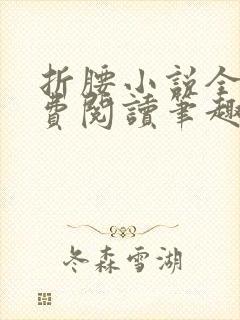 折腰小说全
費閱讀筆趣
冬森雪湖